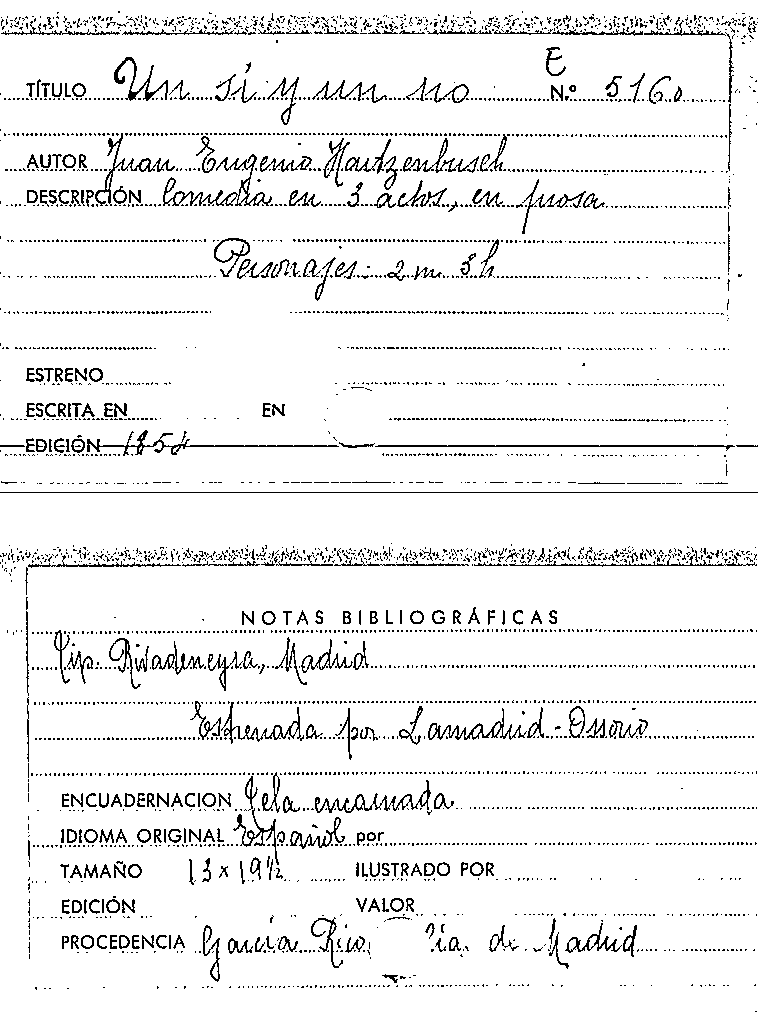 E
TÍTULO Un sí y un no N.º 5160
AUTOR Juan Eugenio Hartzenbusch
DESCRIPCIÓN Comedia en 3 actos, en prosa
Personajes: 2 m 3 h
ESTRENO
ESCRITA EN EN
EDICIÓN 1854
NOTAS BIBLIOGRÁFICAS
Tip. Rivadeneyra, Madrid
Estrenada por Lamadrid-Ossorio
ENCUADERNACION Tela encarnada
IDIOMA ORIGINAL Español por
TAMAÑO 13 x 19½ ILUSTRADO POR
EDICIÓN VALOR
PROCEDENCIA García Rico, de Madrid